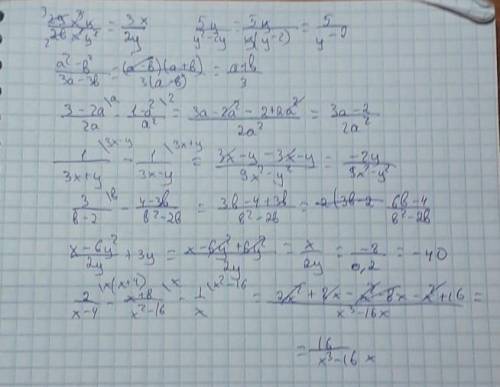 39x³y / 26x²y² = 3x / 2y    5y / y²-2y = 5y / y(y-2) = 5 / y-2
a²-b² / 3a-3b = (a-b)(a+b) / 3(a-b) = a+b / 3
3-2a\ᵃ / 2a - 1-a²\² / a² = 3a-2a²-2+2a² / 2a² = 3a-2 / 2a²
1\³ˣ⁻ʸ / 3x+y - 1\³ˣ⁺ʸ / 3x-y = 3x-y-3x-y / 9x²-y² = -2y / 9x²-y²
3\ᵇ / b-2 - 4-3b / b²-2b = 3b-4+3b / b²-2b = 6b-4 / b²-2b
x-6y² / 2y + 3y = x-6y²+6y² / 2y = x / 2y = -8 / 0,2 = -40
2\ˣ⁽ˣ⁺⁴⁾ / x-4 - x+8\ˣ / x²-16 - 1\ˣ²⁻¹⁶ / x = 2x²+8x-x²-8x-x²+16 / x³-16x =
= 16 / x³-16x